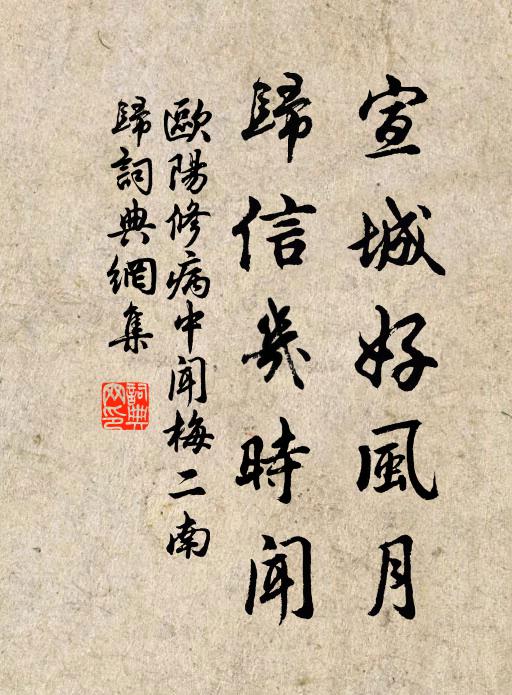 宣城好風月
歸信幾時聞
歐陽修病中聞梅二南
歸詞典網集
詞典
网印